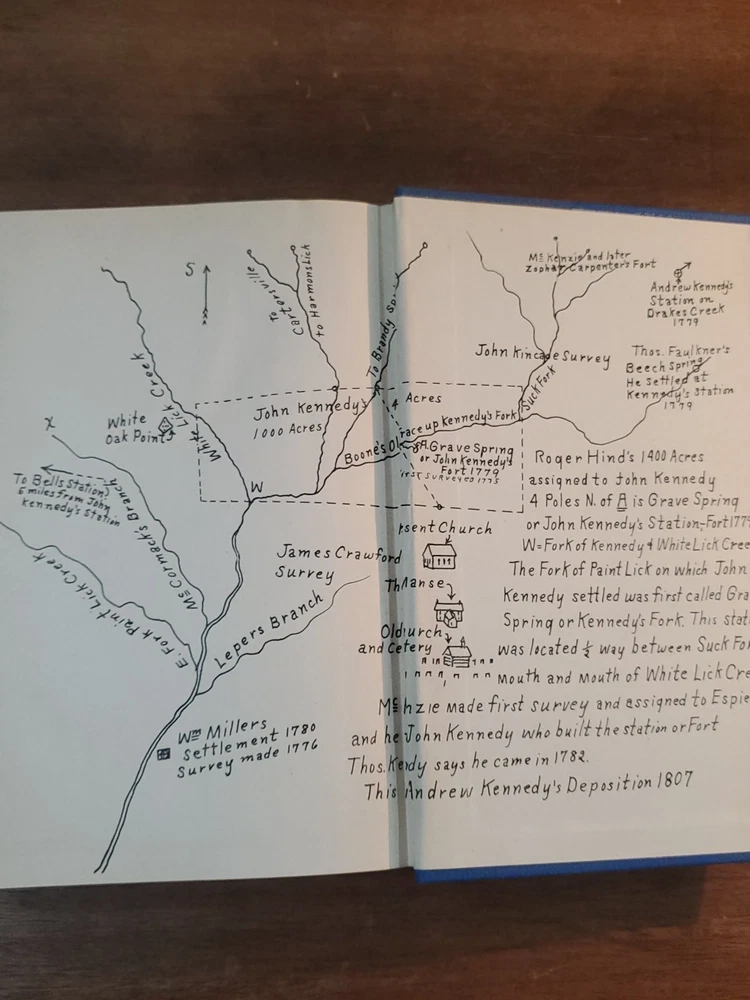 S
To
Cartersville
to Harmonslick
To Brandy Sp.
McKenzie and later
Zophar Carpenter's Fort
Andrew Kennedy's
Station on
Drakes Creek
1779
White Lick Creek
John Kincade Survey
Suck Fork
Thos. Faulkner's
Beech Spring
He Settled at
Kennedy's Station
1779
White
Oak Point
John Kennedy's
1000 Acres
4 Acres
Boone's Ol race up Kennedy's Fork
A Grave Spring
or John Kennedy's
Fort 1779
Surveyed 1775
X
To Bells Station
6 miles from John
Kennedy's Station
McCormack's Branch
W
E. Fork Paint Lick Creek
James Crawford
Survey
Lepers Branch
rsent Church
Th Manse
Old urch
and Cetery
Roger Hind's 1400 Acres
assigned to John Kennedy
4 Poles N. of A is Grave Spring
or John Kennedy's Station-Fort 1779
W=Fork of Kennedy & White Lick Cree
The Fork of Paint Lick on which John
Kennedy settled was first called Gra
Spring or Kennedy's Fork. This stati
was located ½ way between Suck For
mouth and mouth of White Lick Cre
Mc nzie made first survey and assigned to Espie
and he John Kennedy who built the station or Fort
Thos. Kedy says he came in 1782.
This Andrew Kennedy's Deposition 1807
Wm Millers
Settlement 1780
Survey made 1776